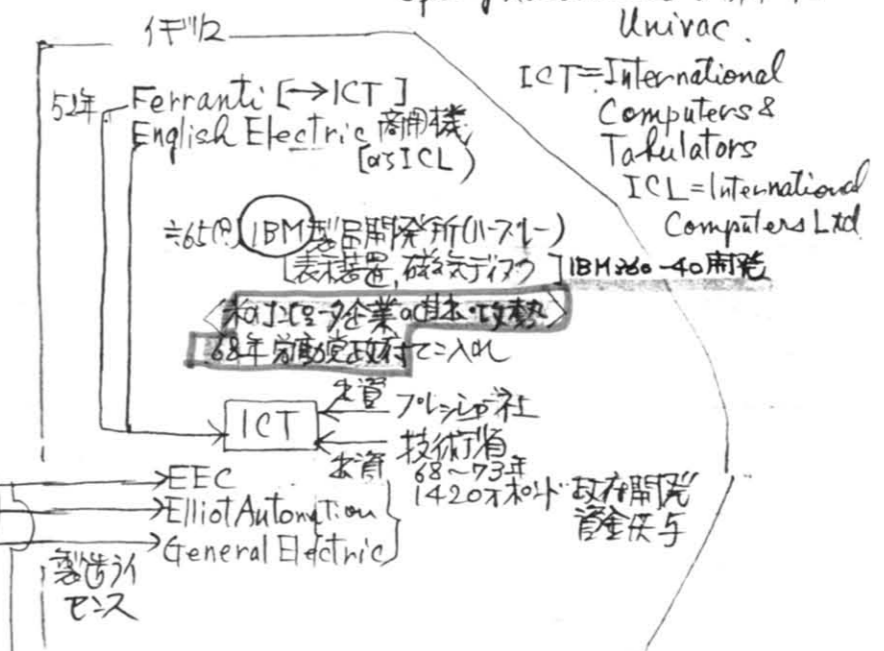 Univac.
イギリス
ICT=International
Computers &
Tabulators
ICL=International
Computers Ltd
52年 Ferranti [→ICT]
English Electric 商用機
[のちICL)
≒65(円) IBM製品開発所(ハーズレー)
[表示装置,磁気ディスク] IBM360-40開発
〈米のコンピュータ企業の 攻勢〉
68年労働党政府てこ入れ
出資 プレッシー社
ICT
出資 技術省
68~73年
1420万ポンド 政府開発
資金供与
EEC
Elliot Automation
General Electric
製造ライ
センス